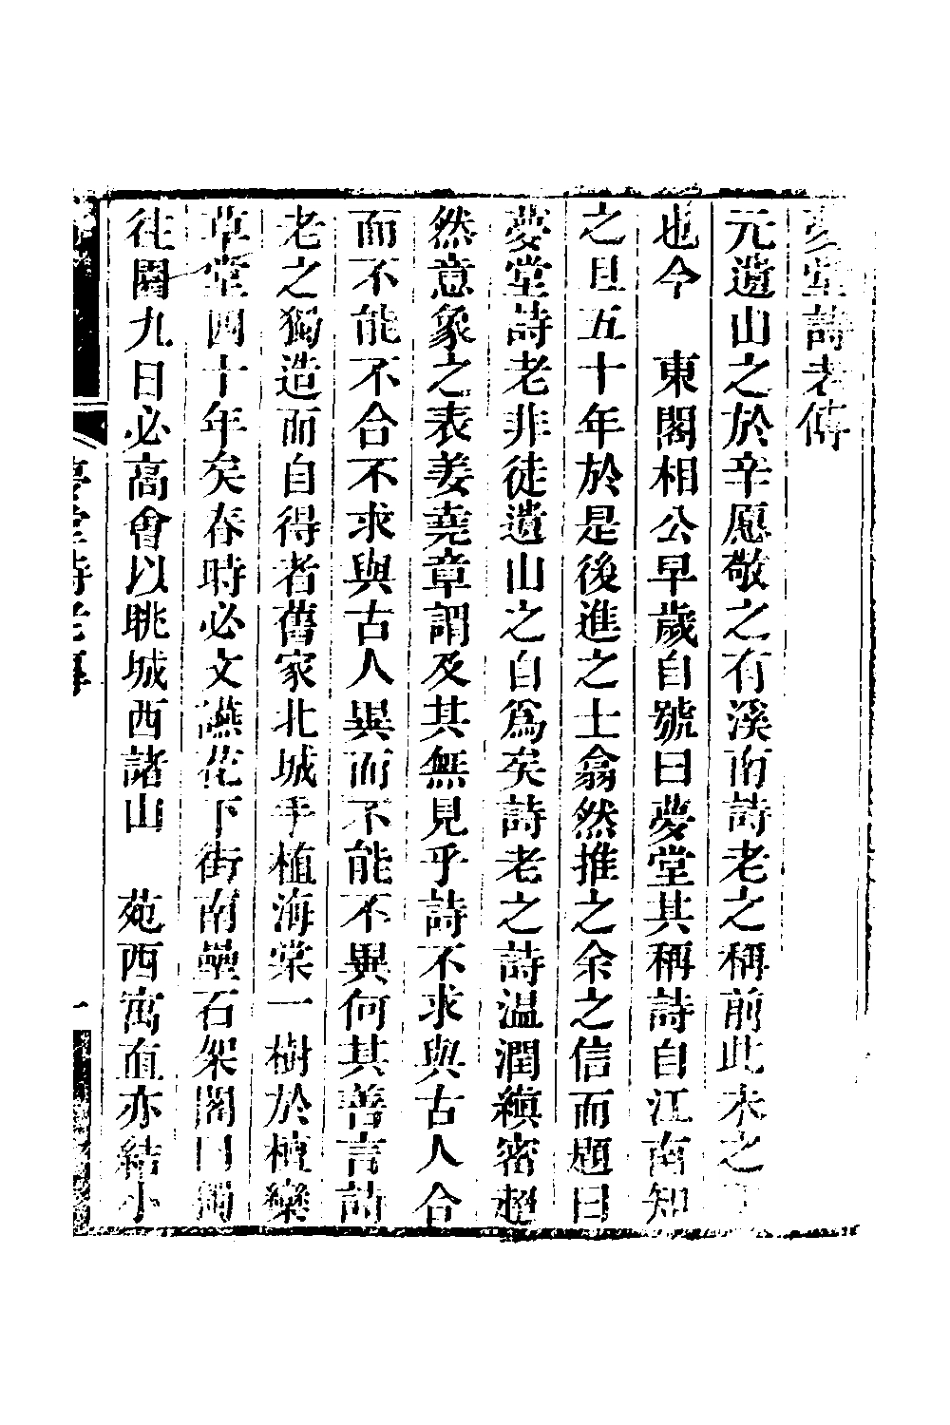 夢堂詩老傳
元遺山之於辛愿敬之有溪南詩老之稱前此未之
也今　東閣相公早歲自號曰夢堂其稱詩自江南知
之旦五十年於是後進之士翕然推之余之信而題曰
夢堂詩老非徒遺山之自爲矣詩老之詩温潤縝密超
然意象之表姜堯章謂及其無見乎詩不求與古人合
而不能不合不求與古人異而不能不異何其善言詩
老之獨造而自得者舊家北城手植海棠一樹於檀欒
草堂四十年矣春時必文讌花下街南壘石架閣曰獨
往園九日必高會以眺城西諸山　苑西寓直亦結小
夢堂詩老傳
一